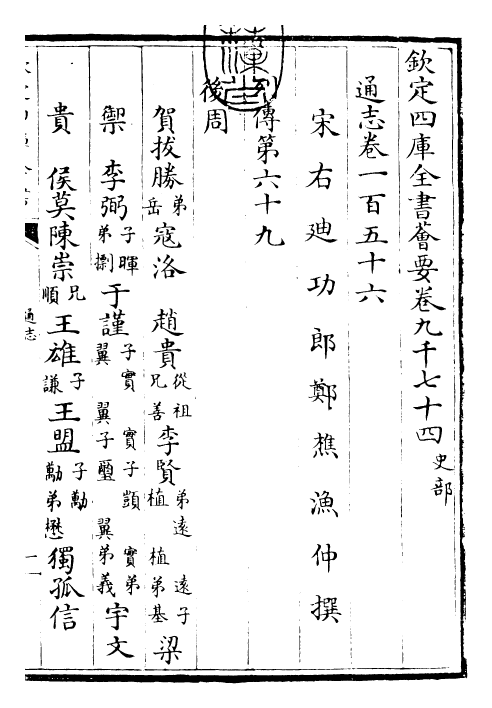 欽定四庫全書薈要卷九千七十四 史部
通志卷一百五十六
宋右廸功郎鄭樵漁仲撰
傳第六十九
後周
賀拔勝 弟岳 寇洛 趙貴 從祖兄善 李賢 弟遠 遠子植 植弟基 梁
禦 李弼 子暉 弟㯹 于謹 子實 翼 實子顗 翼子璽 實弟翼 翼弟義 宇文
貴 侯莫陳崇 兄順 王雄 子謙 王盟 子勱 勱弟懋 獨孤信
通志
一